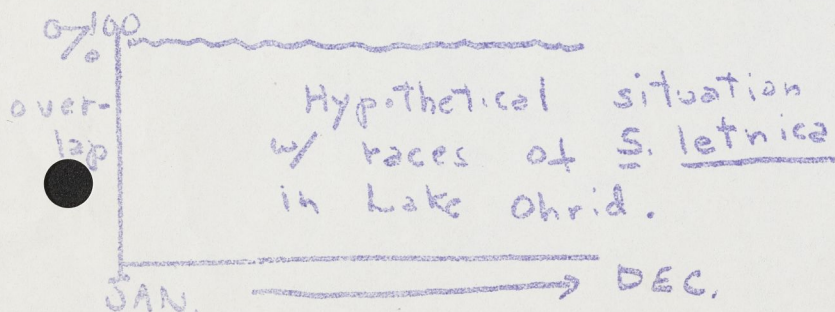 % 100
over-
lap
Hypothetical situation
w/ races of S. letnica
in Lake Ohrid.
JAN. → DEC.